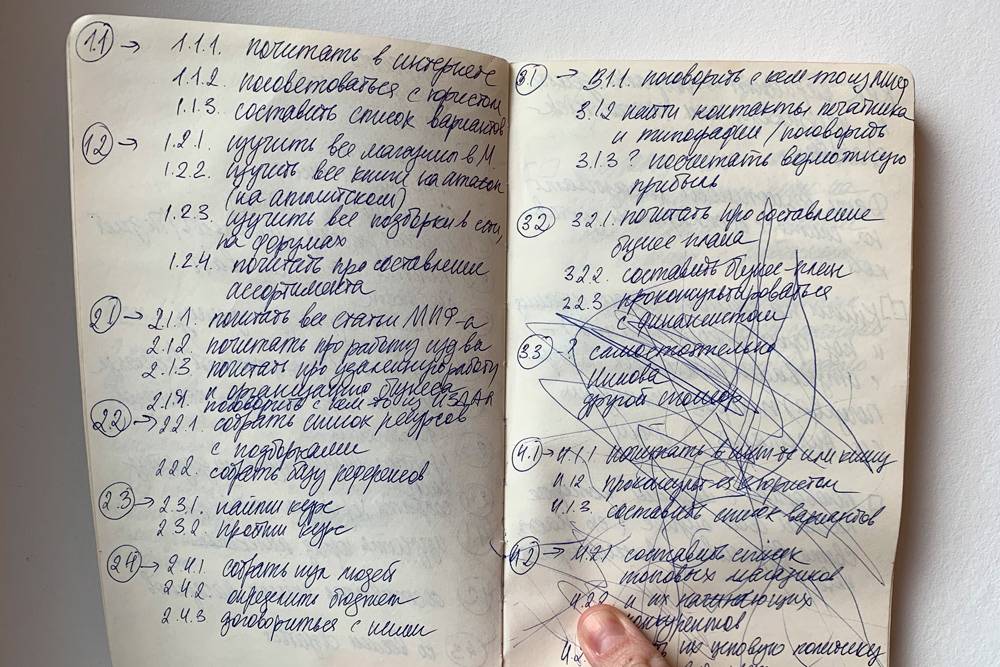 1.1 → 1.1.1. почитать в интернете
1.1.2 посоветоваться с юристом
1.1.3 составить список вариантов
1.2 → 1.2.1. изучить все магазины в М.
1.2.2. изучить все книги на amazon
(на английском)
1.2.3. изучить все подборки в сети,
на форумах
1.2.4. почитать про составление
ассортимента
2.1 → 2.1.1. почитать все статьи МИФ-а
2.1.2. почитать про работу изд-ва
2.1.3 почитать про удаленную работу
и организацию бизнеса
2.1.4. поговорить с кем-то из
2.2 → 2.2.1. собрать список ресурсов
с подборками
2.2.2. собрать базу референсов
2.3 → 2.3.1. найти курс
2.3.2 пройти курс
2.4 → 2.4.1. собрать пул людей
2.4.2 определить бюджет
2.4.3 договориться с ними
3.1 → 3.1.1. поговорить с кем-то из МИФ
3.1.2 найти контакты печатника
и типографии / поговорить
3.1.3 ? посчитать возможную
прибыль
3.2 3.2.1. почитать про составление
бизнес плана
3.2.2. составить бизнес-план
2.2.3 проконсультироваться
с финансистом
3.3 - ? самостоятельно
другой
4.1 → 4.1.1 почитать в инт-те или книгу
4.1.2 проконсульт-ся с юристом
4.1.3. составить список вариантов
4.2 → 4.2.1 составить список
топовых магазинов
4.2.2 и их
конкурентов
4.2. их ценовую политику